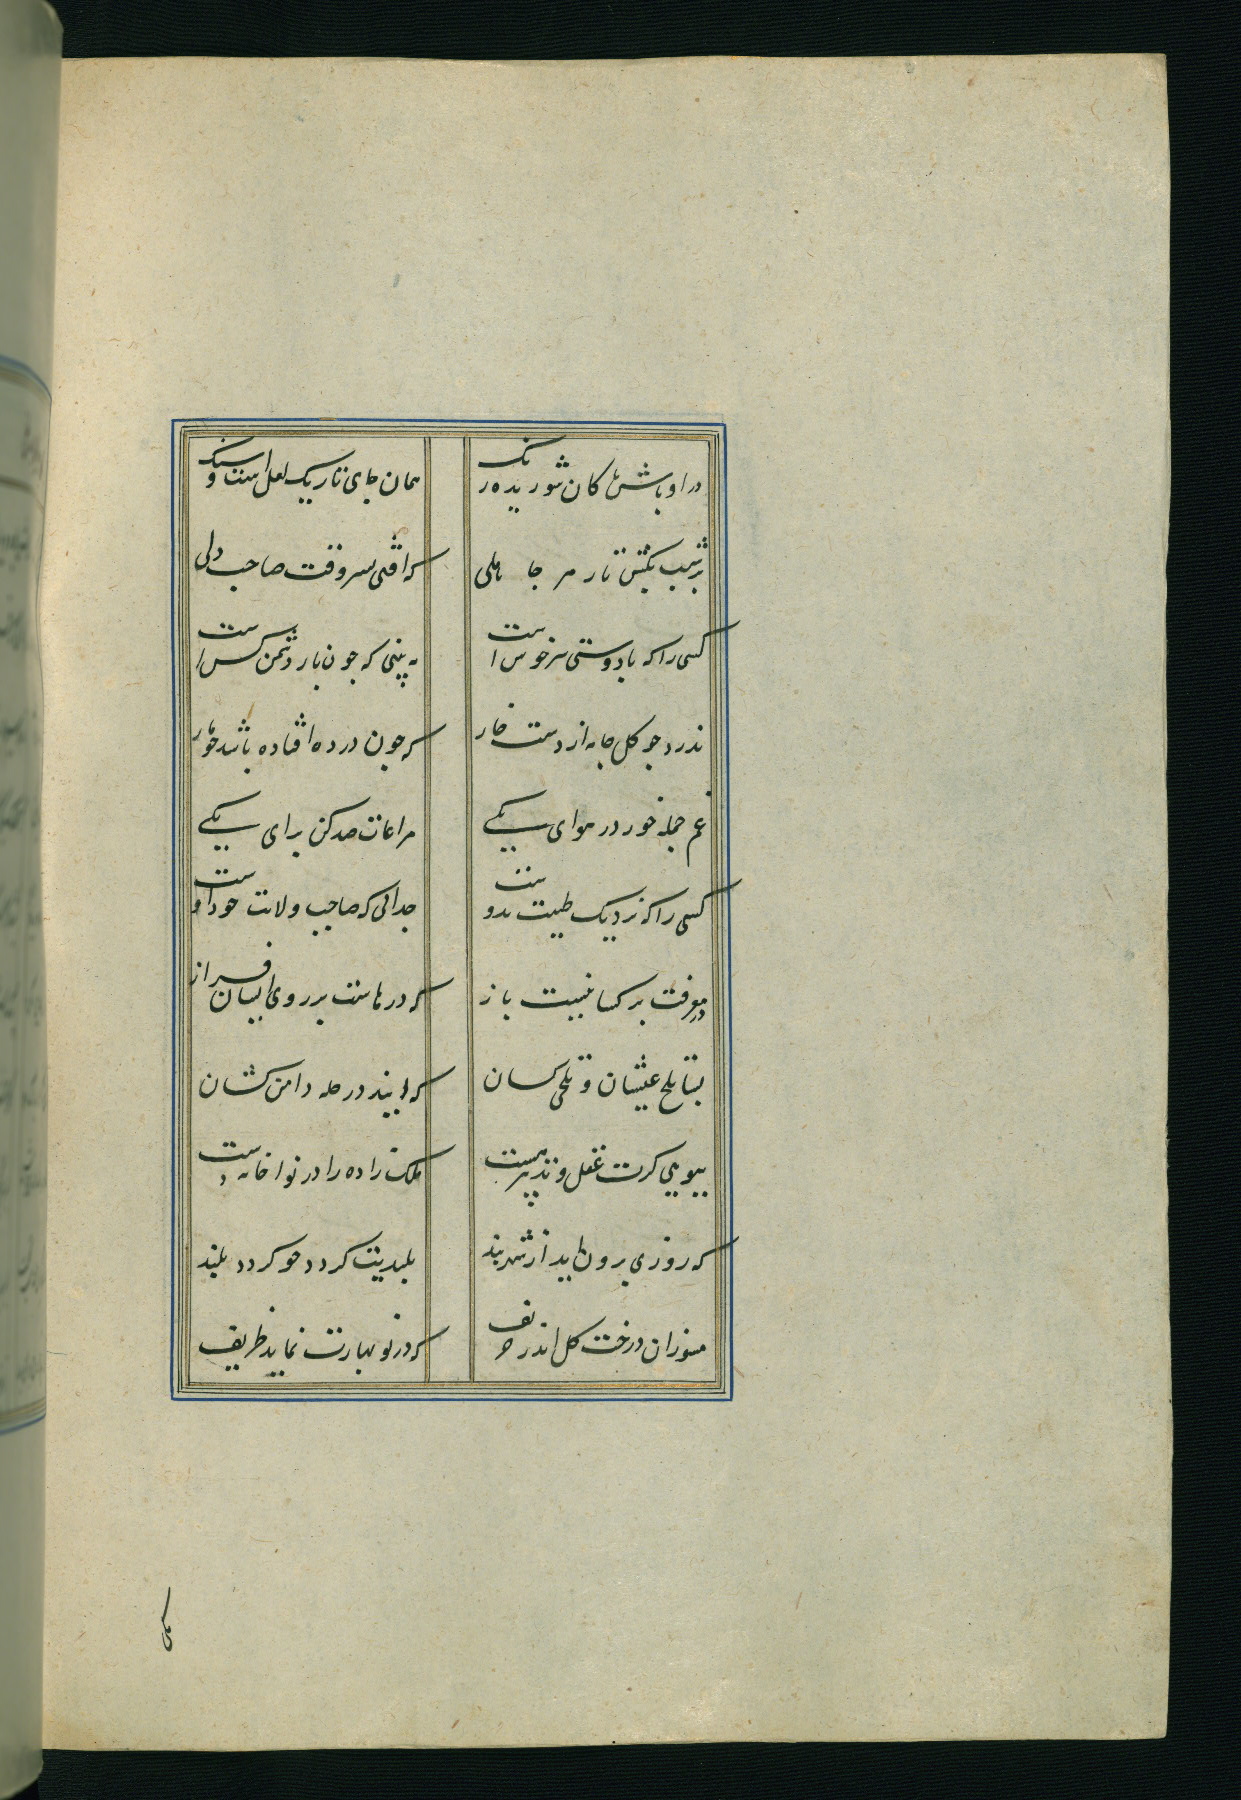 در اوباش پاکان شوریده رنک همان جای تاریک لعل است و سنک
برغبت بکش بار هر جاهلی که افتی بسروقت صاحب دلی
کسی را که با دوستی سرخوش است نه بینی که چون بار دشمن کش است
ندرد چو کل جامه از دست خار که خون در دل افتاده باشد چو نار
غم جمله خور در هوای یکی مراعات صد کن برای یکی
کسی را که نزدیک ظنت بد اوست چه دانی که صاحب ولایت خود اوست
در معرفت بر کسانیست باز که درهاست بر روی ایشان فراز
بسا تلخ عیشان و تلخی کشان که آیند در حله دامن کشان
ببوسی کرت عقل و تدبیر هست ملک زاده را در نواخانه دست
که روزی برون آید از شهربند بلندیت کردد چو کردد بلند
مسوزان درخت کل اندر خریف که در نوبهارت نماید ظریف
یکی